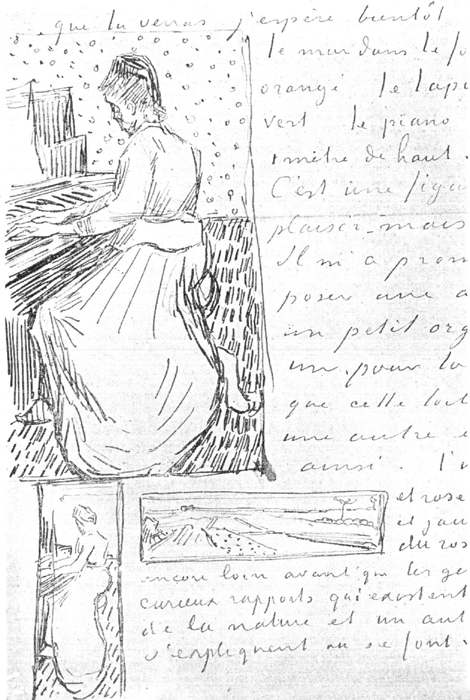 que tu verras j'espère bientôt
le mur dans le fo
orangé le tapi
vert le piano
1 mètre de haut.
C'est une figu
plaisir – mais
Il m'a prom
poser une a
un petit org
un pour to
que cette toil
une autre e
ainsi. l'u
et rose
et jau
du ros
encore loin avant que les ge
curieux rapports qui existent
de la nature et un aut
s'expliquent ou se font